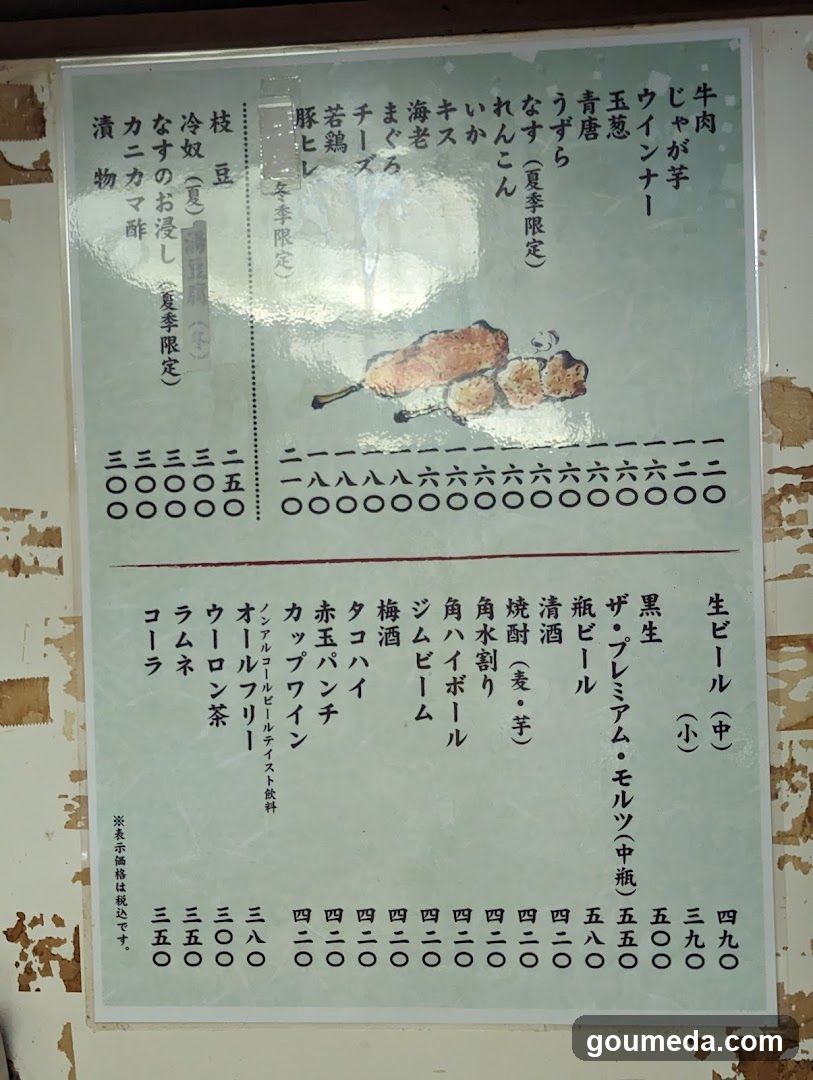 牛肉 一二〇
じゃが芋 一二〇
ウインナー 一六〇
玉葱 一六〇
青唐 一六〇
うずら 一六〇
なす（夏季限定） 一六〇
れんこん 一六〇
いか 一六〇
キス 一六〇
海老 一六〇
まぐろ 一八〇
チーズ 一八〇
若鶏 一八〇
豚ヒレ 一八〇
冬季限定） 二一〇
枝豆 二五〇
冷奴（夏）湯豆腐（冬） 三〇〇
なすのお浸し（夏季限定） 三〇〇
カニカマ酢 三〇〇
漬物 三〇〇
生ビール（中） 四九〇
（小） 三九〇
黒生 五〇〇
ザ・プレミアム・モルツ（中瓶） 五五〇
瓶ビール 五八〇
清酒 四二〇
焼酎（麦・芋） 四二〇
角水割り 四二〇
角ハイボール 四二〇
ジムビーム 四二〇
梅酒 四二〇
タコハイ 四二〇
赤玉パンチ 四二〇
カップワイン 四二〇
ノンアルコールビールテイスト飲料
オールフリー 三八〇
ウーロン茶 三〇〇
ラムネ 三五〇
コーラ 三五〇
※表示価格は税込です。
goumeda.com